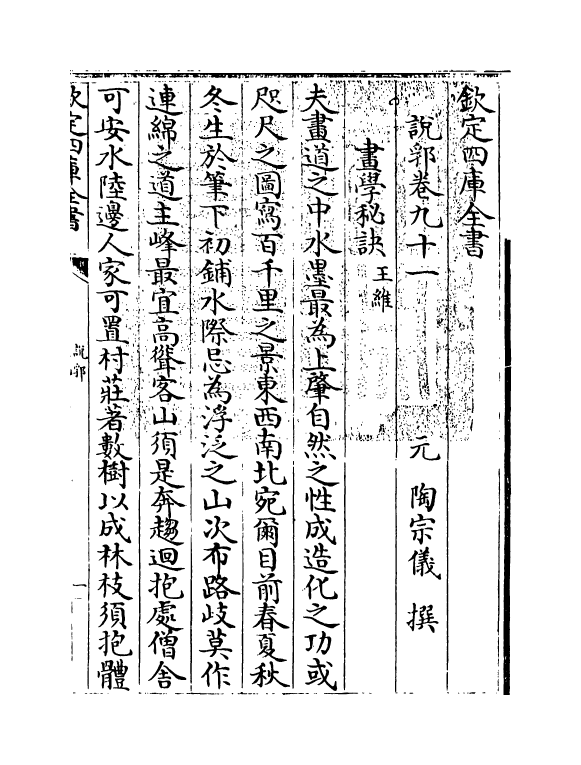 欽定四庫全書
說郛卷九十一　元　陶宗儀　撰
畫學秘訣王維
夫畫道之中水墨最為上肇自然之性成造化之功或
咫尺之圖寫百千里之景東西南北宛爾目前春夏秋
冬生於筆下初鋪水際忌為浮泛之山次布路歧莫作
連綿之道主峰最宜高聳客山須是奔趨迴抱處僧舍
可安水陸邊人家可置村莊著數樹以成林枝須抱體
欽定四庫全書
說郛
一